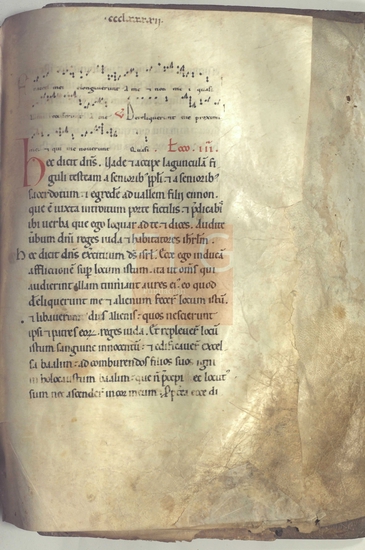 · cccl.x.x.x.vii ·
mei elongauerunt a me et non me · quasi
Dereliquerunt me proximi
mei et qui me nouerunt Quasi · Leco · iii ·
Hec dicit dns̄. Uade et accipe lagunculā fi
guli testeam a seniorib' ppl̄i et a seniorib'
sacerdotum: et egredē ad uallem filii ennon.
que ē iuxta introitum porte fictilis et p̄dicabi'
ibi uerba que ego loquar ad te et dices. Audite
uerbum dnī reges iuda et habitatores ihrl̄m.
Hec dicit dns̄ exercituum ds̄ isrl̄. Ecce ego inducā
afflictionē sup locum istum. ita ut omīs qui
audierit illam tinniant aures ei'. eo quod
dereliquerunt me et alienum fecer̄ locum istū.
et libauer̄ diis alienis: quos nescierunt
ipsi et patres eor̄. reges iuda. Et repleuer̄ locū
istum sanguine innocentū: et edificauer̄ excel
sa baalim: ad comburendos filios suos igni
in holocaustum baalim: que ñ p̄cepi ec locut'
sum nec ascender̄ in cor meum. Ppterea ecce di